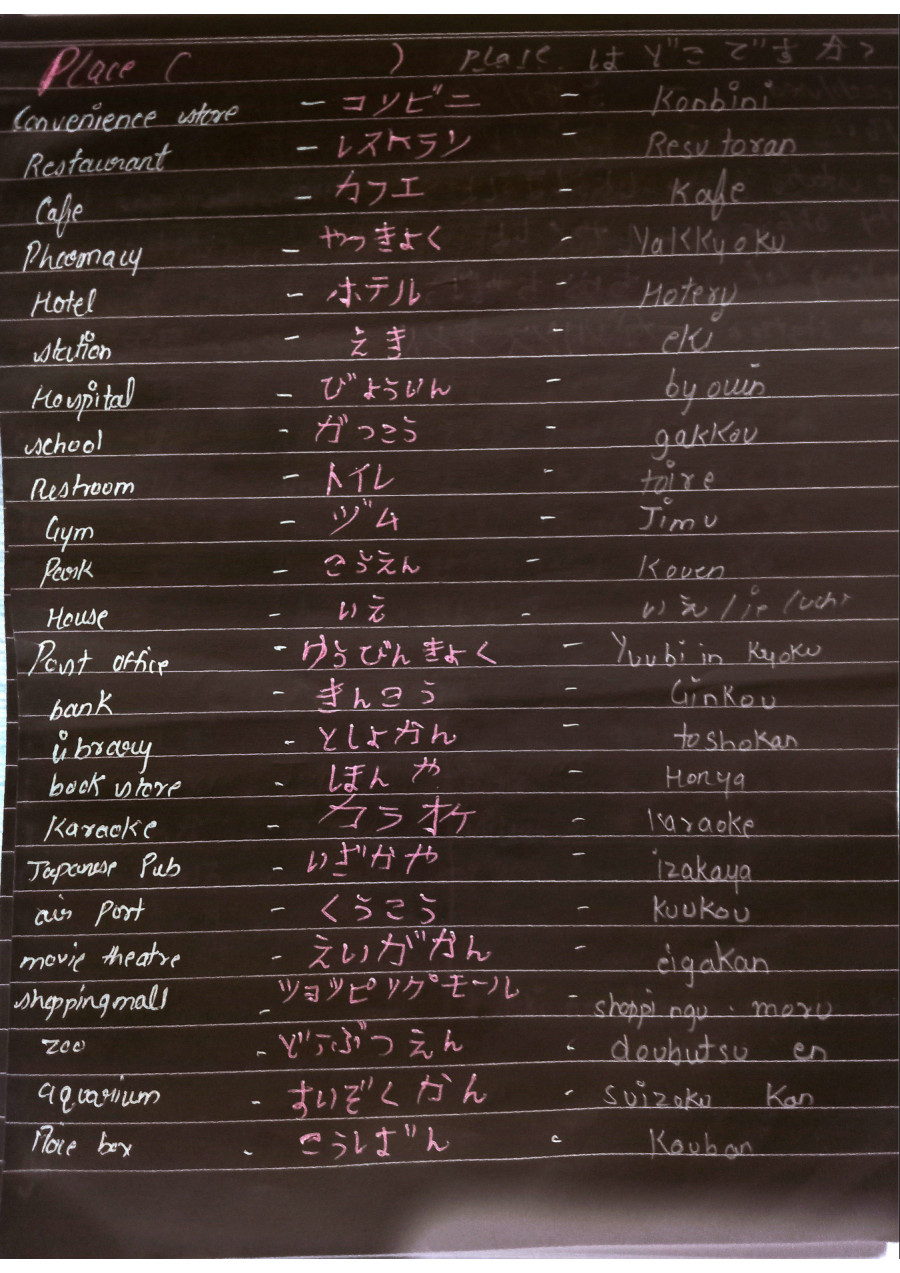 Place ( ) Place は どこですか?
Convenience store - コンビニ - Konbini
Restaurant - レストラン - Resutoran
Cafe - カフエ - Kafe
Pharmacy - やっきょく - Yakkyoku
Hotel - ホテル - Hoteru
station - えき - eki
Hospital - びょういん - byouin
school - がっこう - gakkou
Restroom - トイレ - toire
Gym - ヅム - Jimu
Park - こうえん - Kouen
House - いえ - いえ/ie/uchi
Post office - ゆうびんきょく - Yuubiin Kyoku
bank - ぎんこう - Ginkou
library - としょかん - toshokan
book store - ほんや - Honya
Karaoke - カラオケ - Karaoke
Japanese Pub - いざかや - izakaya
air port - くうこう - kuukou
movie theatre - えいがかん - eigakan
shoppingmall - ツョツピソグモール - shoppingu . moru
zoo - どうぶつえん - doubutsu en
aquarium - すいぞくかん - suizoku Kan
box - こうばん - Kouban